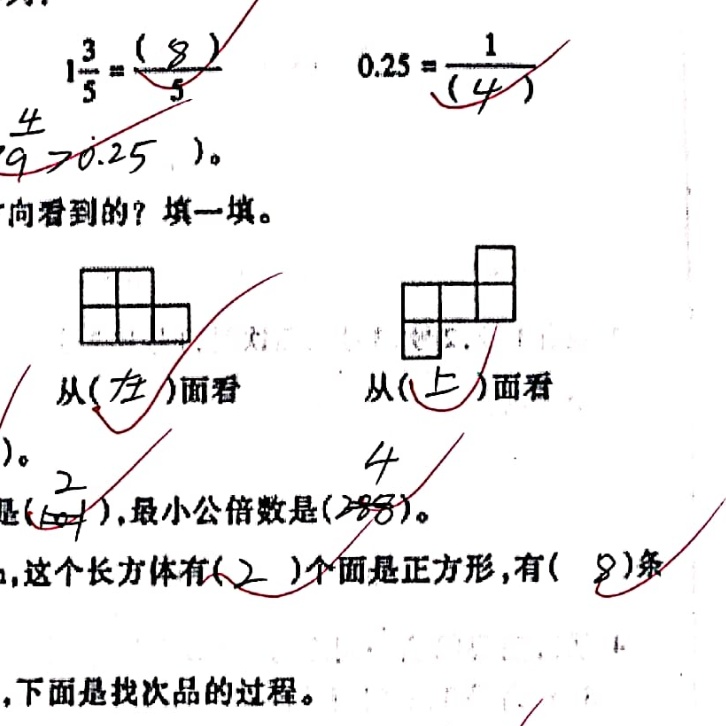 1 3/5 = ( 8 )/5    0.25 = 1/( 4 )
4/9 > 0.25 )。
向看到的？填一填。
从( 左 )面看    从( 上 )面看
)。
是( 2 ),最小公倍数是( 4 )。
,这个长方体有( 2 )个面是正方形,有( 8 )条
,下面是找次品的过程。